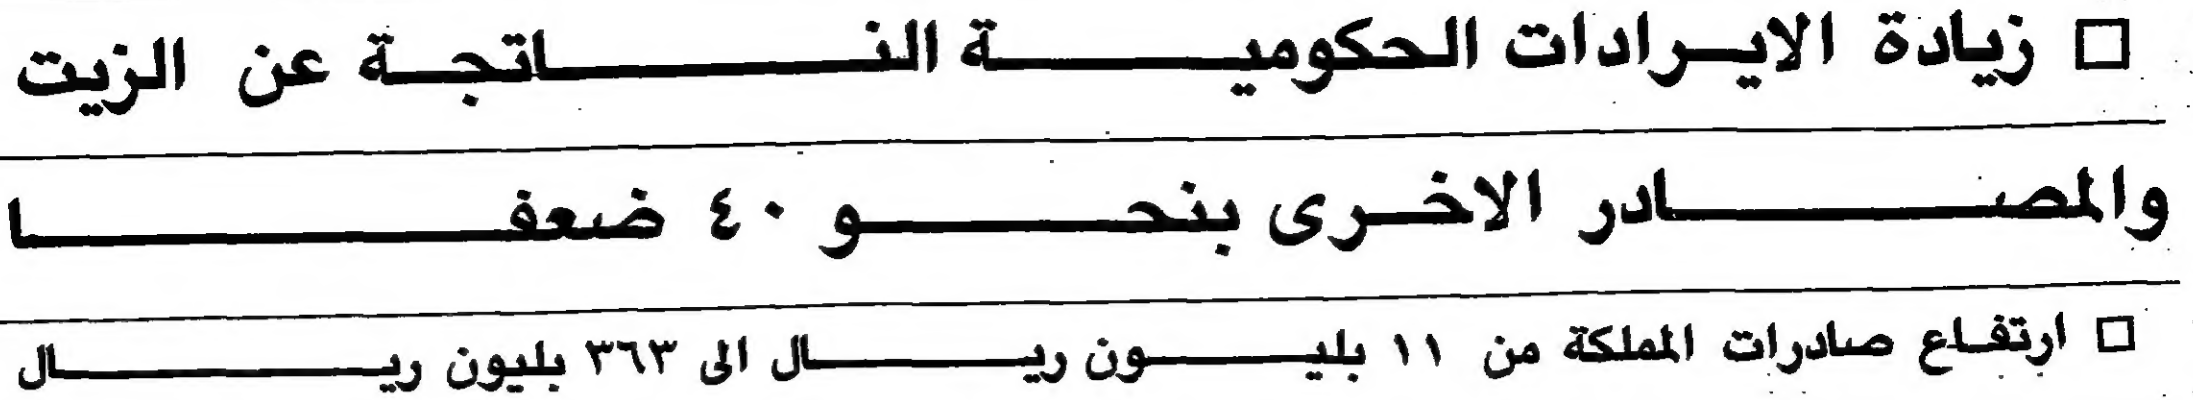 □ زيادة الايرادات الحكومية الناتجة عن الزيت
والمصادر الاخرى بنحو ٤٠ ضعفا
□ ارتفاع صادرات المملكة من ١١ بليون ريال الى ٣٦٣ بليون ريال